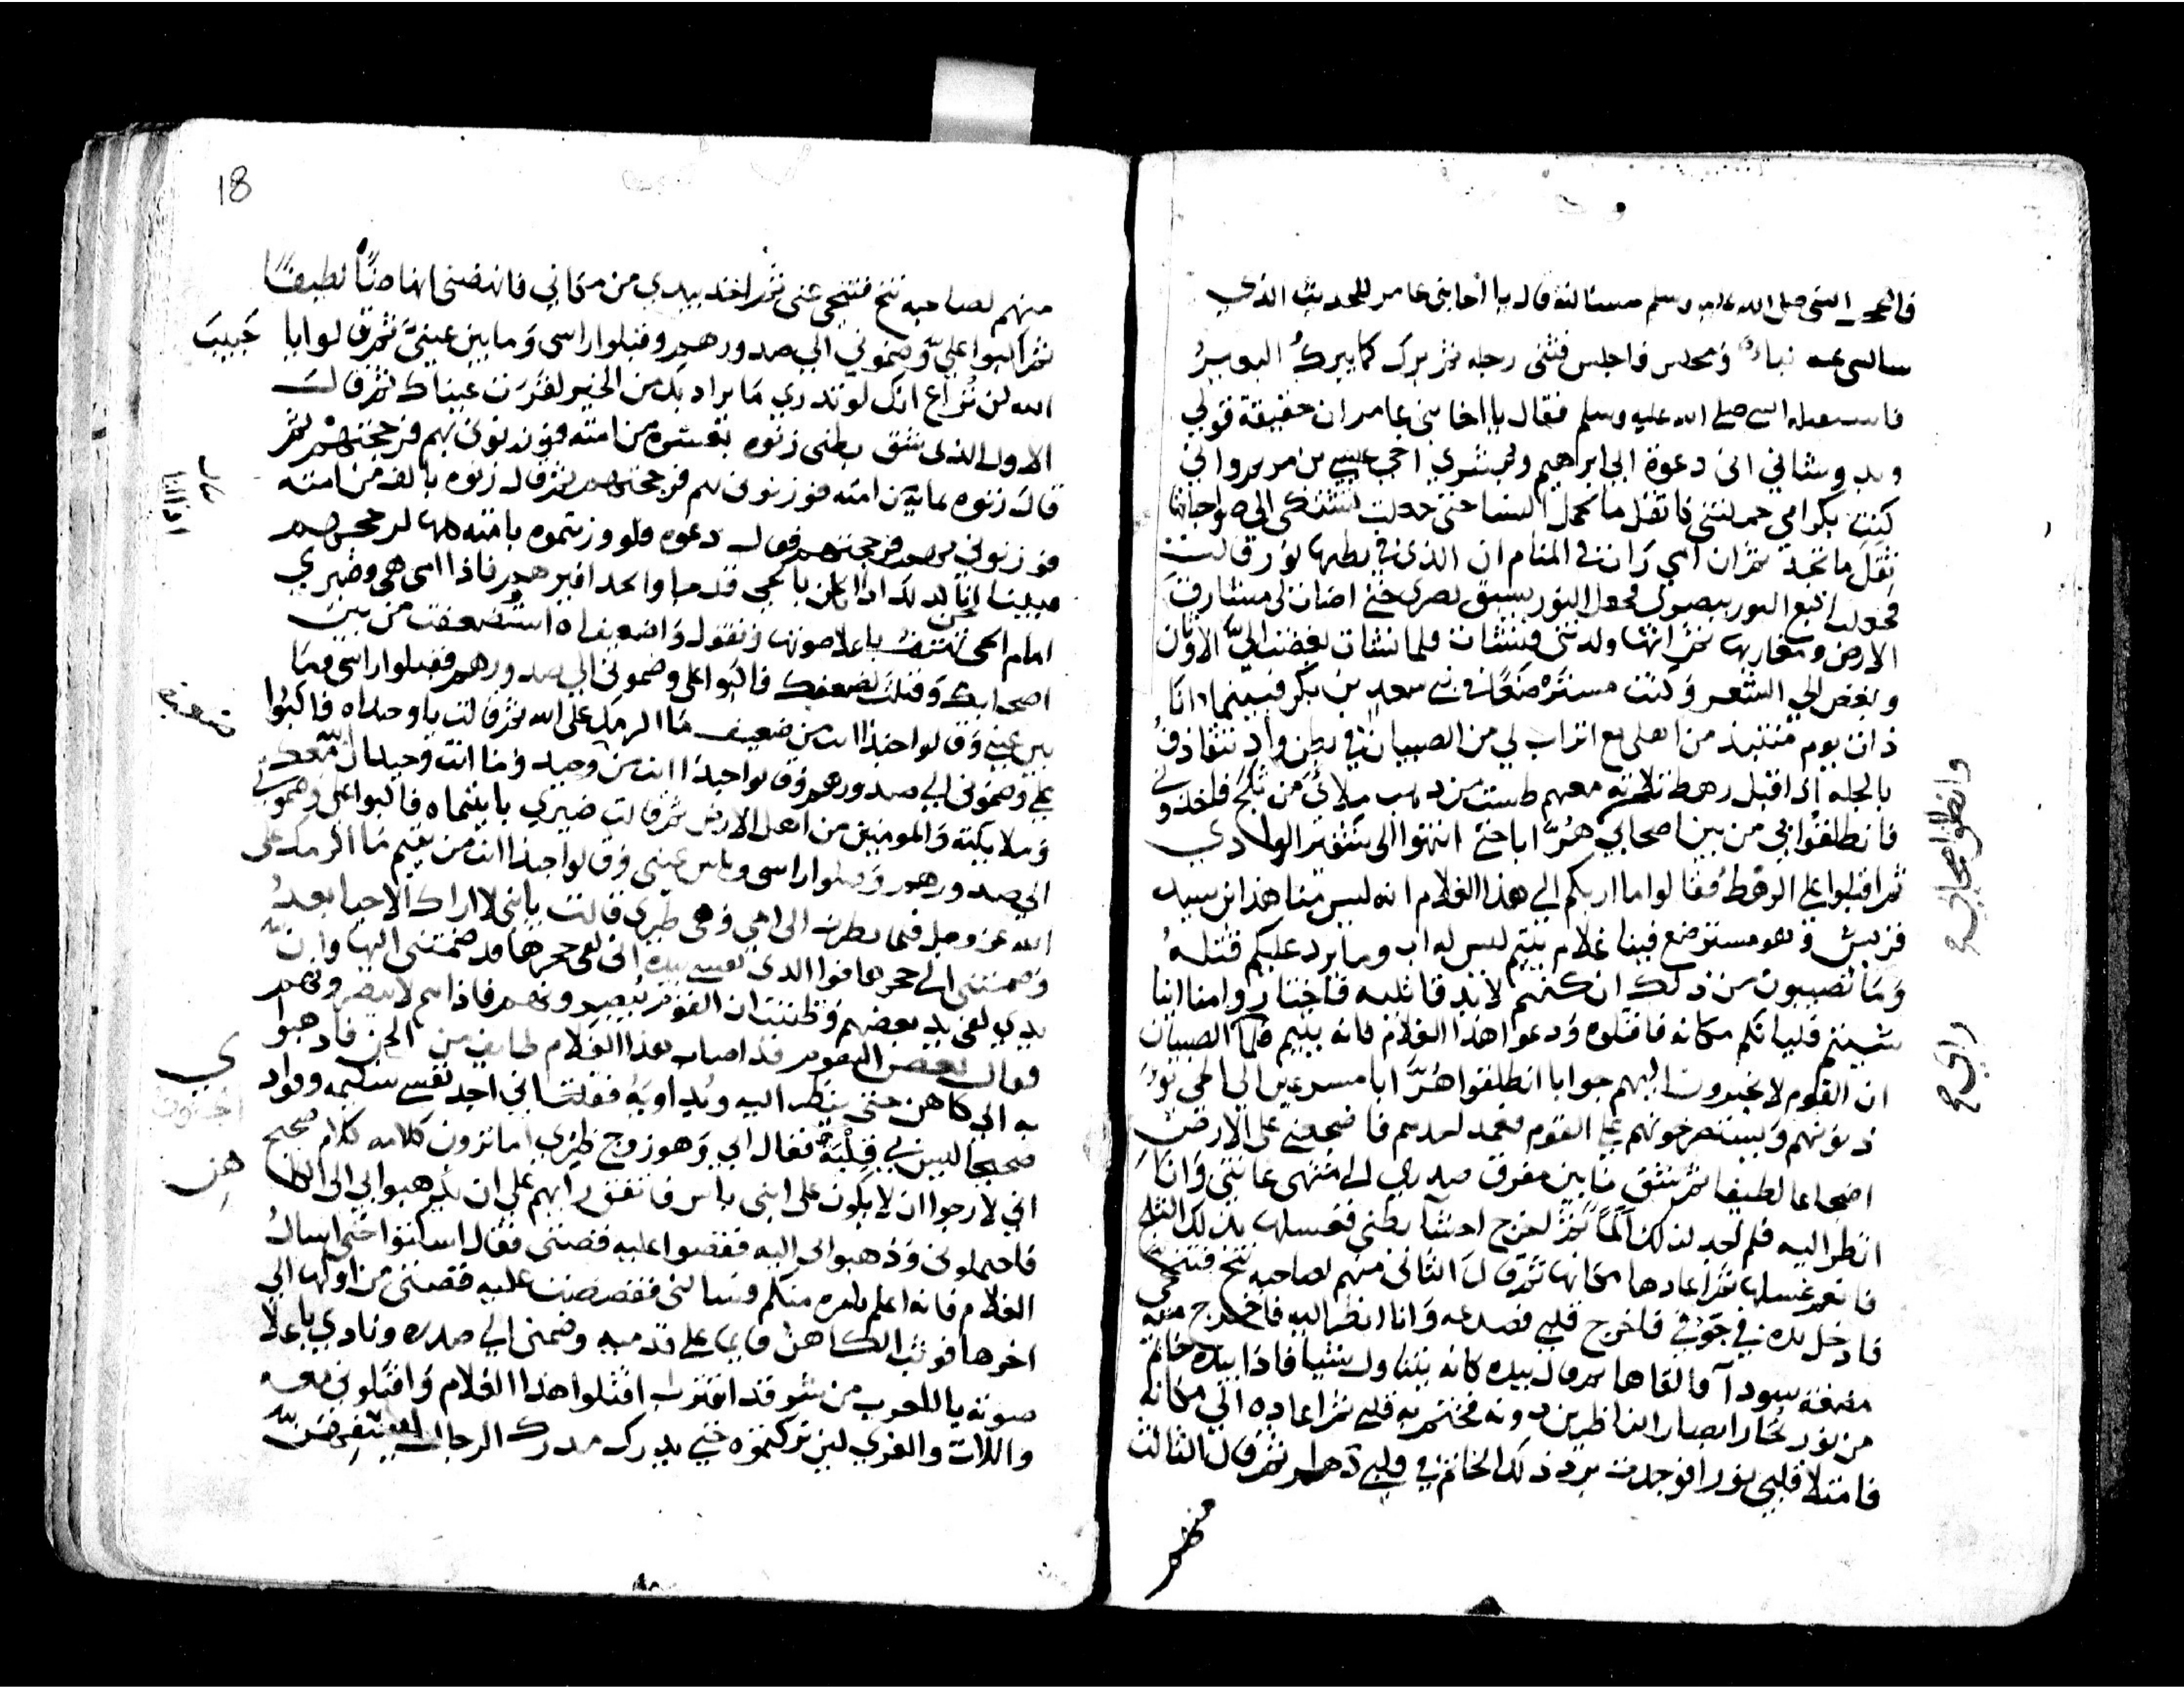 فاعجب النبي صلى الله عليه وسلم مسالته قال يا اخا بني عامر للحديث الذي
سالتني عنه نباء ومجلس فاجلس فثنى رجله ثم برك كما يبرك البعير
فاستقبله النبي صلى الله عليه وسلم فقال يا اخا بني عامر ان حقيقة قولي
وبدو شاني اني دعوة ابي ابراهيم وبشرى اخي عيسى بن مريم واني
كنت بكر امي حملتني كاثقل ما تحمل النسا حتى جعلت تشتكي الى صواحباتها
ثقل ما تجد ثم ان امي رات في المنام ان الذي في بطنها نور قالت
فجعلت اتبع النور بصري فجعل النور يسبق بصري حتى اضات لي مشارق
الارض ومغاربها ثم انها ولدتني فنشات فلما نشات بغضت الي الاوثان
وبغض الي الشعر وكنت مسترضعا في بني سعد بن بكر فبينما انا
ذات يوم منتبذ من اهلي مع اتراب لي من الصبيان في بطن واد نتقاذف
بالجله اذ اقبل رهط ثلاثه معهم طست من ذهب ملائ من ثلج فاخذوني
فانطلقوا بي من بين اصحابي هرابا حتى انتهوا الى شفير الوادي
وانطلقوا اصحابي
ثم اقبلوا على الرهط فقالوا ما اربكم الى هذا الغلام انه ليس منا هذا ابن سيد
قريش وهو مسترضع فينا غلام يتيم ليس له اب وما يرد عليكم قتله
وما تصيبون من ذلك ان كنتم لابد قاتليه فاختاروا منا اينا
شيتم فلياتكم مكانه فاقتلوه ودعوا هذا الغلام فانه يتيم فلما الصبيان
راى
ان القوم لا يحيرون اليهم جوابا انطلقوا هرابا مسرعين الى الحي يو
ذنونهم ويستصرخونهم على القوم فعمد احدهم فاضجعني على الارض
اضجاعا لطيفا ثم شق ما بين مفرق صدري الى منتهى عانتي وانا
انظر اليه فلم اجد لذلك الما ثم اخرج احشا بطني فغسلها بذلك الثلج
فانعم غسلها ثم اعادها مكانها ثم قال الثاني منهم لصاحبه تنح فتنحى
فادخل يده في جوفي فاخرج قلبي فصدعه وانا انظر اليه فاخرج منه
مضغة سودا فالقاها ثم قال بيده كانه يتناول شيا فاذا بيده خاتم
من نور تحار ابصار الناظرين دونه فختم به قلبي ثم اعاده الى مكانه
فامتلا قلبي نورا فوجدت برد ذلك الخاتم في قلبي دهرا ثم قال الثالث
منهم
18
منهم لصاحبه تنح فتنحى عني ثم اخذ بيدي من مكاني فانهضني انهاضا لطيفا
ثم اكبوا علي وضموني الى صدورهم وقبلوا راسي وما بين عيني ثم قالوا يا حبيب
الله لن تراع انك لو تدري ما يراد بك من الخير لقرت عيناك ثم قال
الاول الذي شق بطني زنوه بعشره من امته فوزنوني بهم فرجحتهم ثم
قال زنوه بمايه من امته فوزنوني بهم فرجحتهم ثم قال زنوه بالف من امته
فوزنوني بهم فرجحتهم فقال دعوه فلو وزنتموه بامته كلها لرجحهم
فبينا نحن كذلك اذا بالحي قد جاوا بحذافيرهم فاذا امي هي وضيري
امام الحي تهتف باعلا صوتها وتقول واضعيفاه استضعفت من بين
اصحابك وقتلت لضعفك فاكبوا علي وضموني الى صدورهم فقبلوا راسي وما
بين عيني وقالوا حبذا انت من ضعيف ما اكرمك على الله ثم قالت يا وحيداه فاكبوا
علي وضموني الى صدورهم وقالوا حبذا انت من وحيد وما انت وحيد ان الله معك
وملايكته والمومنين من اهل الارض ثم قالت ضيري يا يتيماه فاكبوا علي وضموني
الى صدورهم وقبلوا راسي وما بين عيني وقالوا حبذا انت من يتيم ما اكرمك على
الله عز وجل فلما نظرت الى امي وهي ظيري قالت يا بني لا اراك الا حيا بعد
وضمتني الى حجرها فوا الذي نفسي بيده اني لفي حجرها قد ضمتني اليها وان
يدي لفي يد بعضهم وظننت ان القوم تبصرونهم فاذا هم لا يبصرونهم
فقال بعض القوم قد اصاب هذا الغلام طايف من الجن فاذهبوا
به الى كاهن حتى ينظر اليه ويداويه فقلت اني اجد نفسي سليمه وفواد
ي
صحيحا ليس بي قلبة فقال ابي وهو زوج ظيري اما ترون كلامه كلام صحيح
اني لارجوا ان لا يكون على ابني باس فاتفق رايهم على ان يذهبوا بي الى الكا
هن
فاحتملوني وذهبوا بي اليه فقصوا عليه قصتي فقال اسكتوا حتى اسال
الغلام فانه اعلم بامره منكم وسالني فقصصت عليه قصتي من اولها الى
اخرها فوثب الكاهن قايما على قدميه وضمني الى صدره ونادي باعلا
صوته يا للعرب من شر قد اقترب اقتلوا هذا الغلام واقتلوني معه
واللات والعزي لين تركتموه حتى يدرك مدرك الرجال